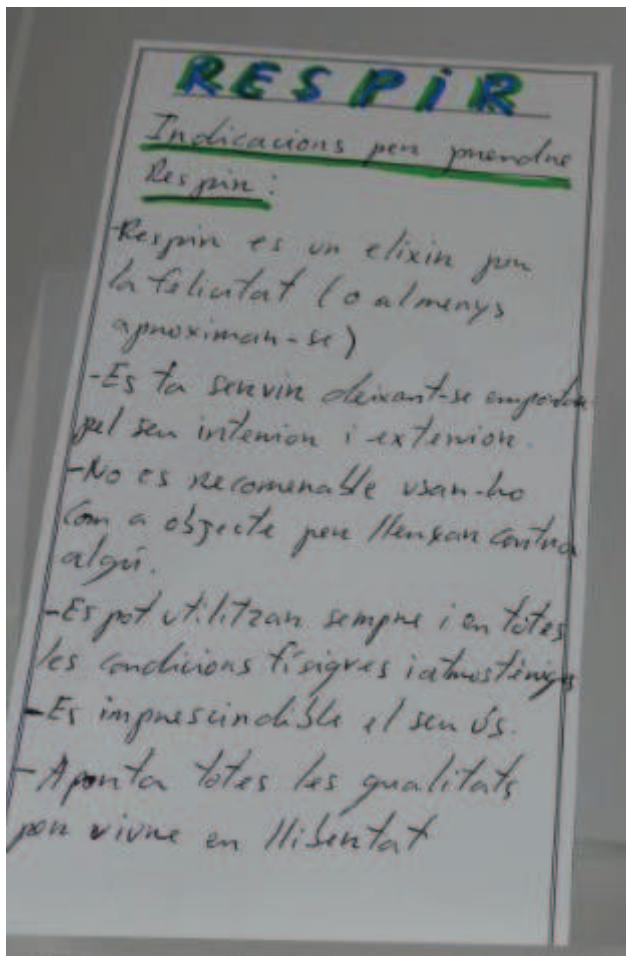 RESPiR
Indicacions per prendre
Respir:
-Respir es un elixir per
la felicitat (o almenys
aproximar-se)
-Es fa servir deixant-se emportar
pel seu interior i exterior.
-No es recomenable usar-ho
Com a objecte per llençar contra
algú.
-Es pot utilitzar sempre i en totes
les condicions físiques i atmosfèriques
-Es imprescindible el seu ús.
-Aporta totes les qualitats
per viure en llibertat